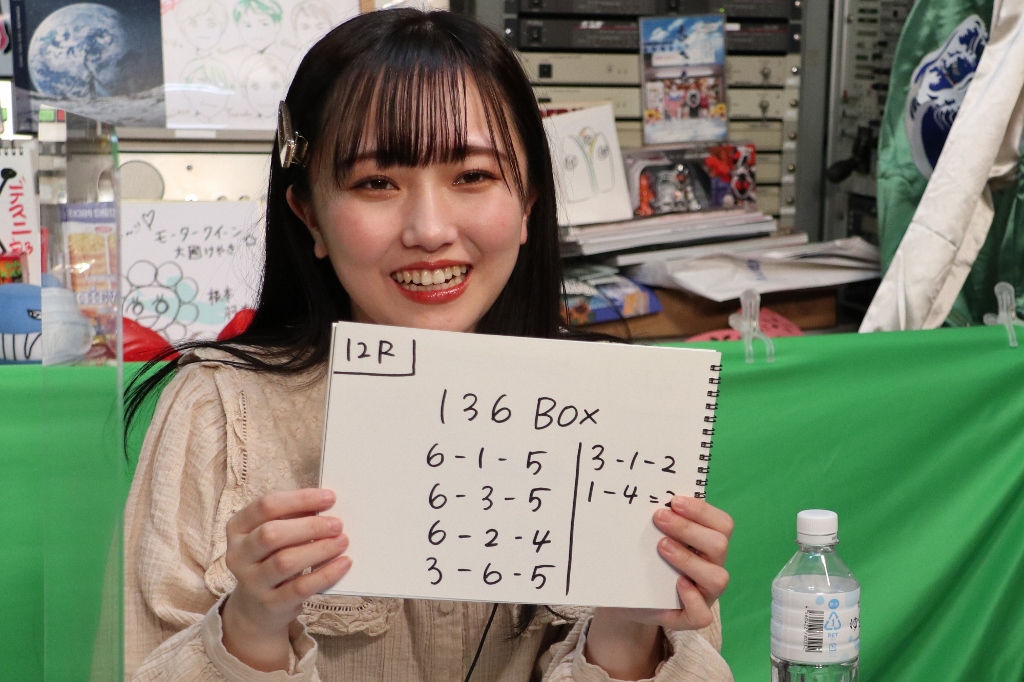 12R
136 Box
6-1-5
6-3-5
6-2-4
3-6-5
3-1-2
1-4=2
モータークイーン
大國けやき
PET